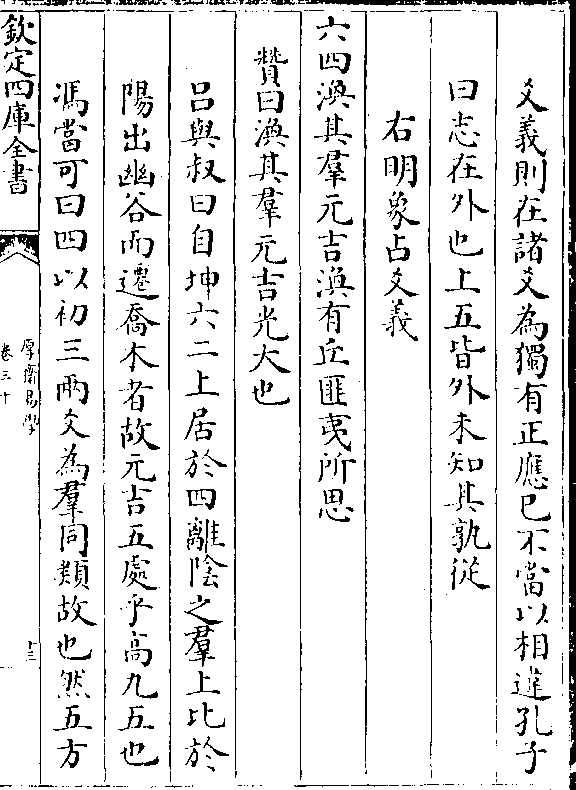 爻義則在諸爻為獨有正應已不當以相違孔子
曰志在外也上五皆外未知其孰從
右明象占爻義
六四渙其羣元吉渙有丘匪夷所思
贊曰渙其羣元吉光大也
呂與叔曰自坤六二上居於四離陰之羣上比於
陽出幽谷而遷喬木者故元吉五處乎高九五也
馮當可曰四以初三兩爻為羣同類故也然五方
欽定四庫全書
厚齋易學
卷三十
十三